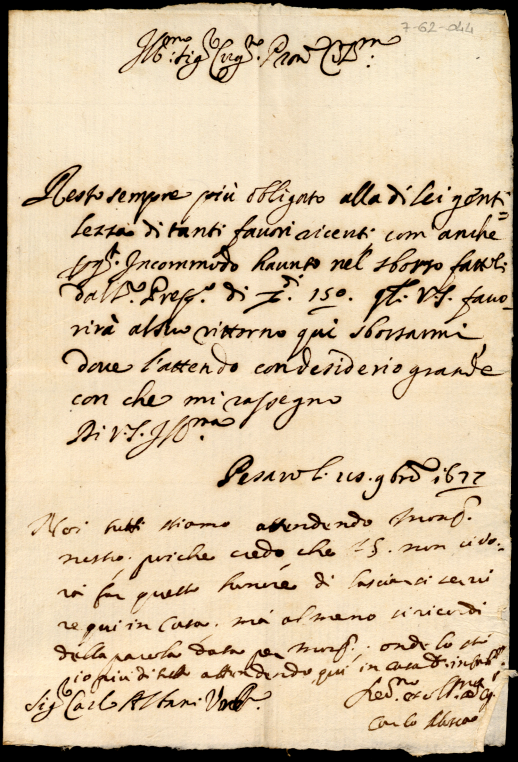 7-62-044
Ill.mo Sig.r Sig.r Pron. Col.mo
Resto sempre più obligato alla di lei genti=
lezza di tanti favori riceuti com anche
Incommodo hauuto nel sborso fattoli
dal Presg.e di 150. V.S. fauo=
rirà al suo rittorno qui sborsarmi,
doue l'attendo con desiderio grande
con che mi rassegno
Di V.S. Ill.ma
Pesaro li 9bre 1677
Noi tutti stiamo attendendo Mons.
nostro. poiche credo che V.S. non ci vo=
rà far questo honore di lasciarci servi
re qui in Casa. mà almeno si ricordi
della parola data per Mons.
io più di tutti attendendo qui in casa
Sig.r Carlo Albani Urb.
Carlo